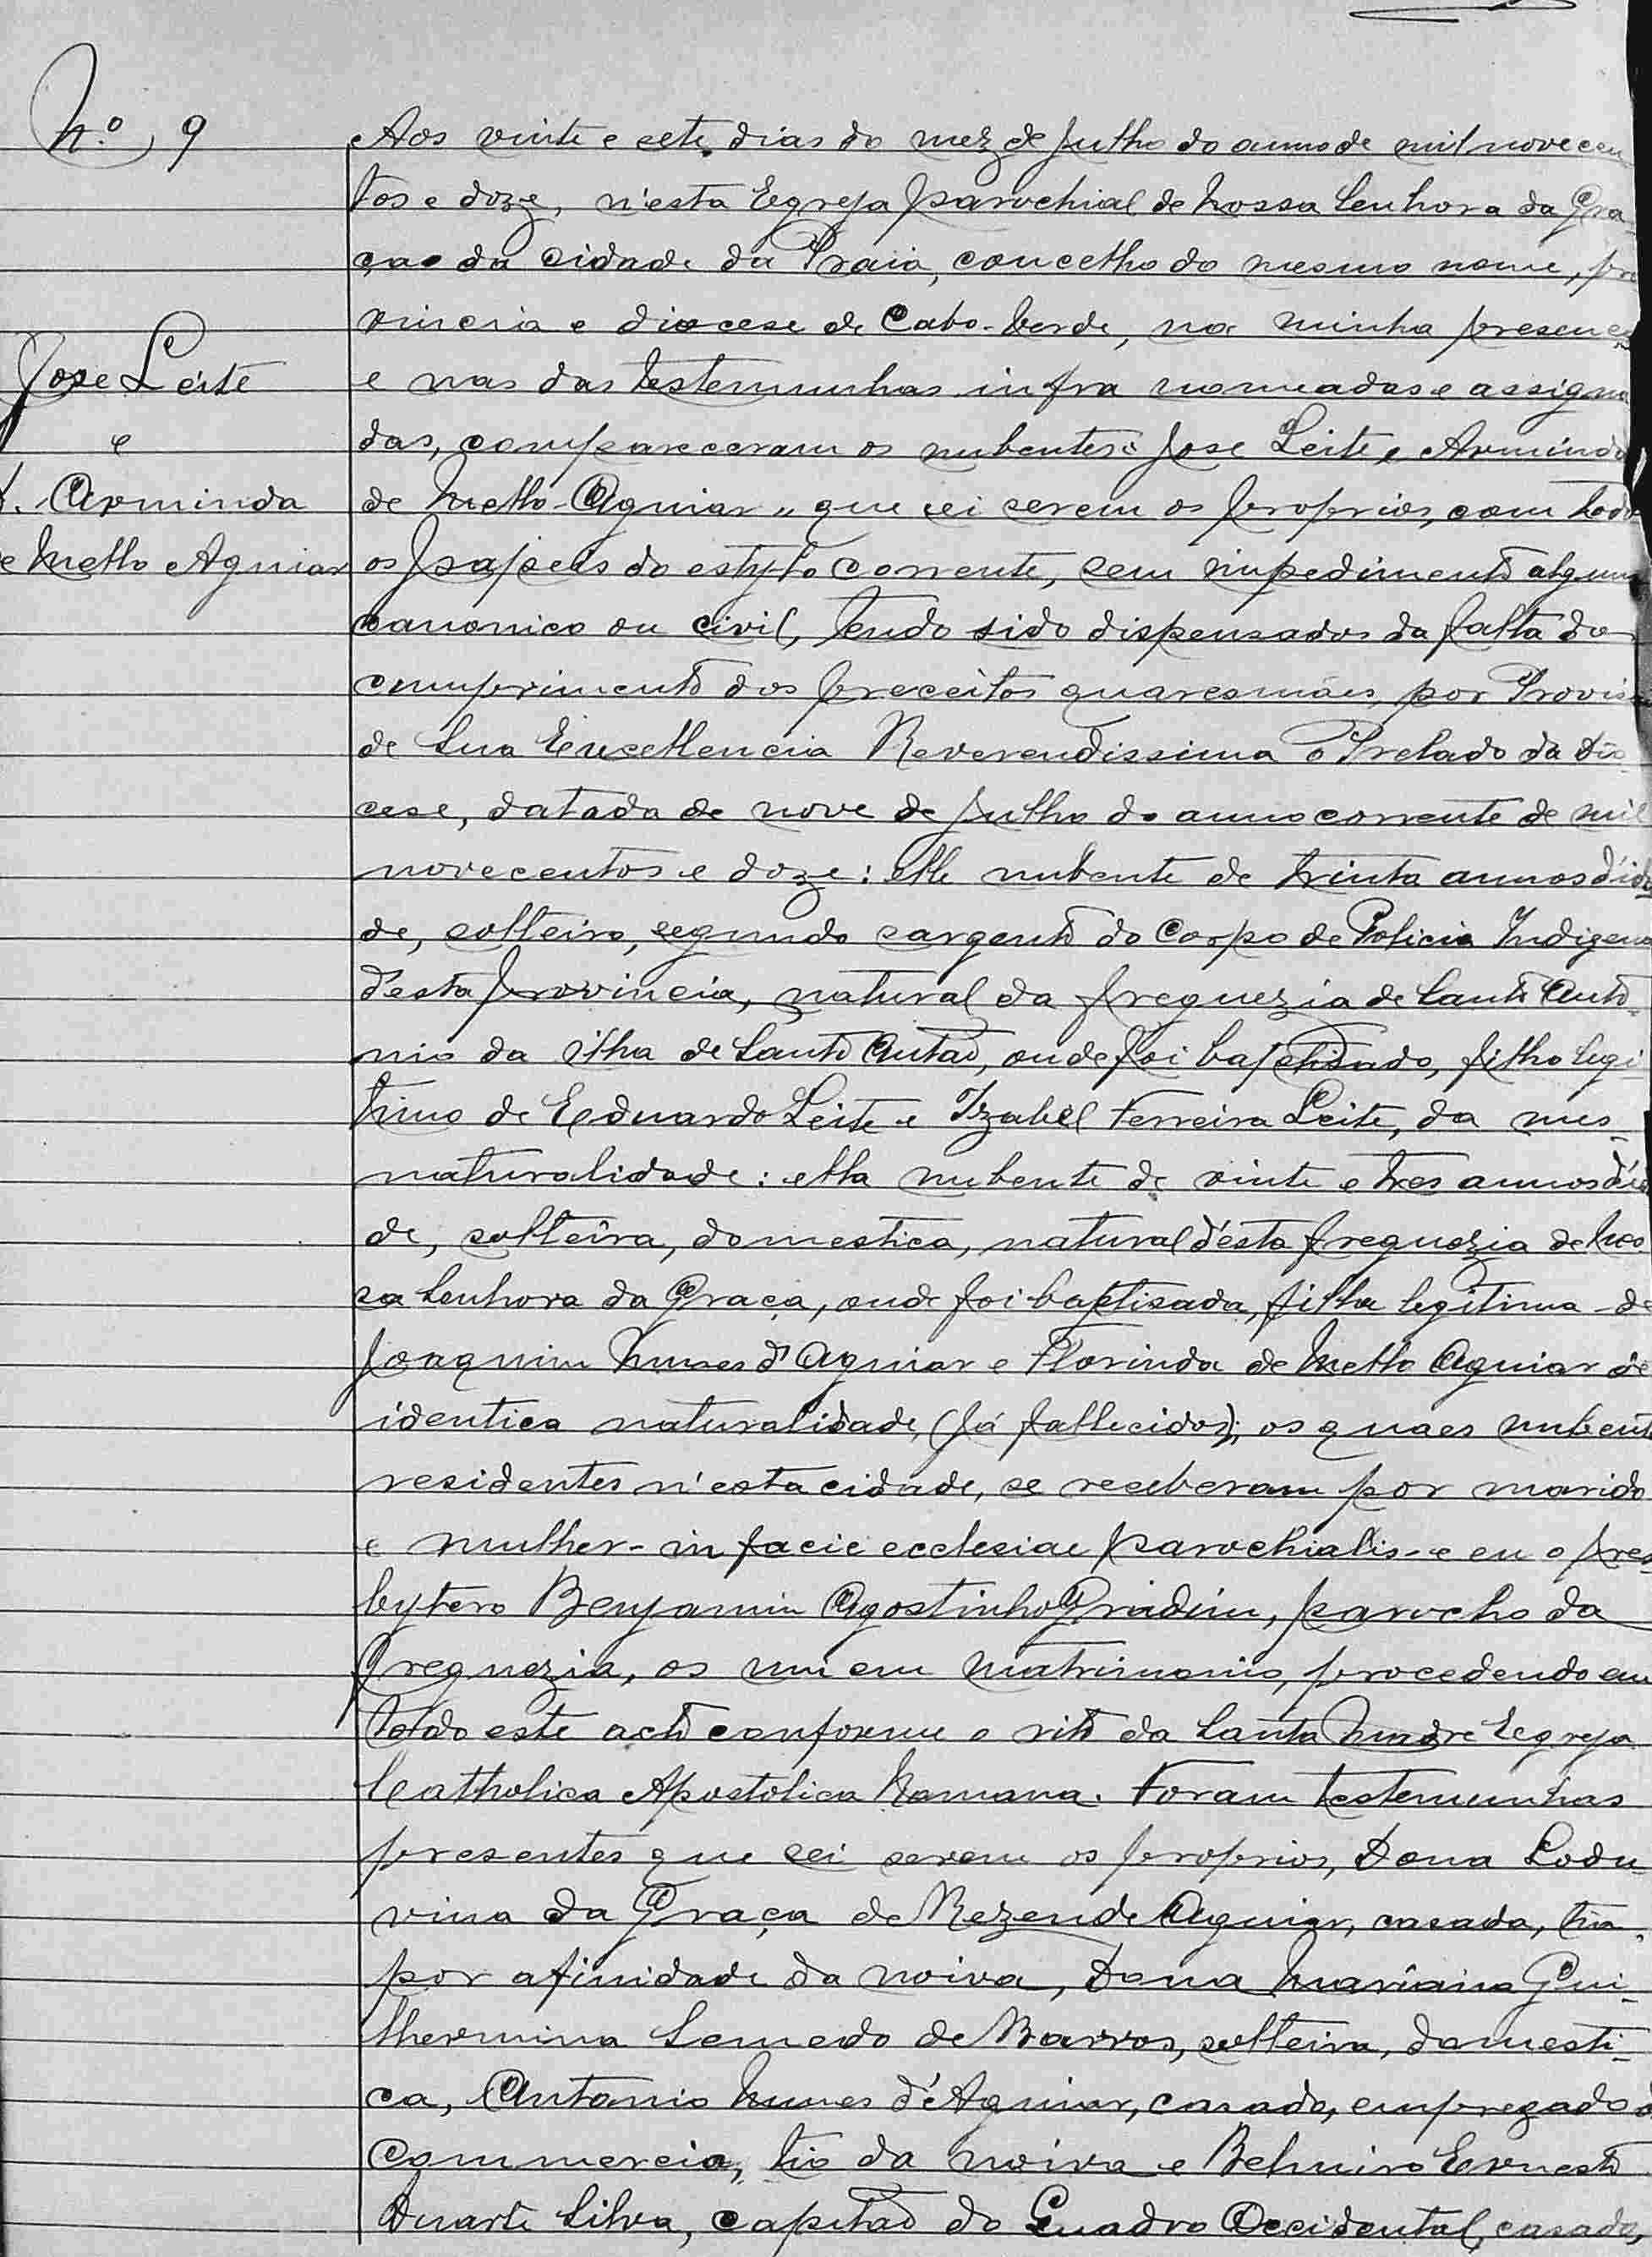 Nº 9
Jose Leite
e
D. Arminda
de Mello Aguiar
Aos vinte e sete dias do mez de Julho do anno de mil novecen
tos e doze, n'esta Egreja parochial de Nossa Senhora da Gra
ça da cidade da Praia, concelho do mesmo nome, pro
vincia e diocese de Cabo-Verde, na minha presença
e nas das testemunhas infra nomeadas e assigna
das, compareceram os nubentes: Jose Leite e Arminda
de Mello Aguiar „ que sei serem os proprios, com todos
os papeis do estylo corrente, sem impedimento algum
canonico ou civil, tendo sido dispensados da falta do
cumprimento dos preceitos quaresmáes, por Provisão
de Sua Excellencia Reverendissima o Prelado da Dio
cese, datada de nove de Julho do anno corrente de mil
novecentos e doze: elle nubente de trinta annos d'ida
de, solteiro, segundo sargento do Corpo de Policia Indigena
d'esta provincia, natural da freguezia de Santo Anto
nio da ilha de Santo Antão, onde foi baptisado, filho legi
timo de Eduardo Leite e Izabel Ferreira Leite, da mes-
naturalidade: ella nubente de vinte e tres annos d'ida
de, solteira, domestica, natural d'esta freguezia de Nos
sa Senhora da Graça, onde foi baptisada, filha legitima de
Joaquim Nunes d'Aguiar e Florinda de Mello Aguiar de
identica naturalidade, (já fallecidos); os quaes nubentes
residentes n'esta cidade, se receberam por marido
e mulher - in facie ecclesiae parochialis - e eu o pres
bytero Benjamin Agostinho Griadim, parocho da
freguezia, os uni em matrimonio, procedendo em
todo este acto conforme o rito da Santa Madre Egreja
Catholica Apostolica Romana. Foram testemunhas
presentes que sei serem os proprios, Dona Lodu-
vina da Graça de Rezende Aguiar, casada, tia
por afinidade da noiva, Dona Mariana Gui-
lhermina Semedo de Barros, solteira, domesti-
ca, Antonio Nunes d'Aguiar, casado, empregado do
Commercio, tio da noiva e Belmiro Ernesto
Duarte Silva, capitão do Quadro Occidental, casado,